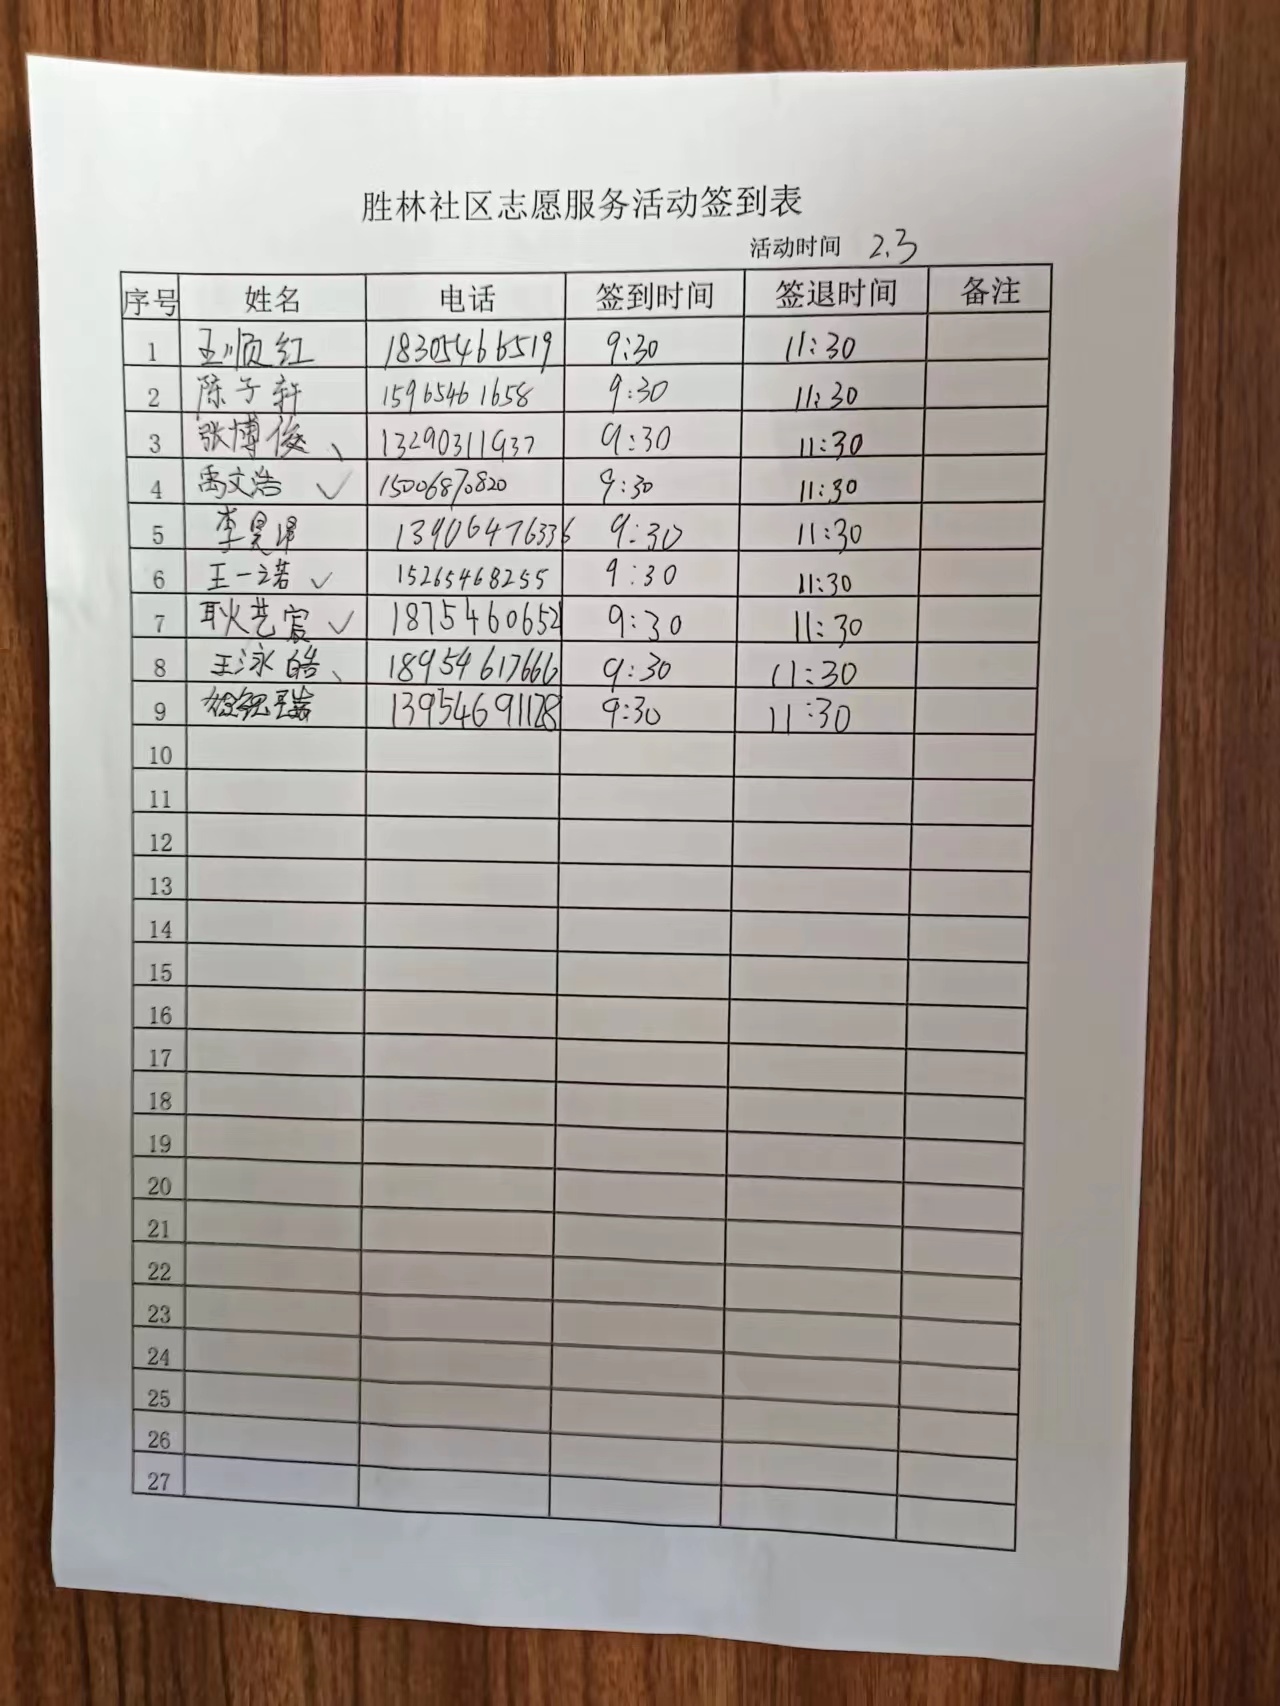 胜林社区志愿服务活动签到表
活动时间 2.3
序号 姓名 电话 签到时间 签退时间 备注
1 王顺红 18305466519 9:30 11:30
2 陈子轩 15965461658 9:30 11:30
3 张博俊 、 13290311937 9:30 11:30
4 禹文浩 ✓ 15006870820 9:30 11:30
5 李昊 13906476336 9:30 11:30
6 王一诺 ✓ 15265468255 9:30 11:30
7 耿艺宸 ✓ 1875460652 9:30 11:30
8 王泳皓 、 18954617666 9:30 11:30
9 13954691128 9:30 11:30
10
11
12
13
14
15
16
17
18
19
20
21
22
23
24
25
26
27